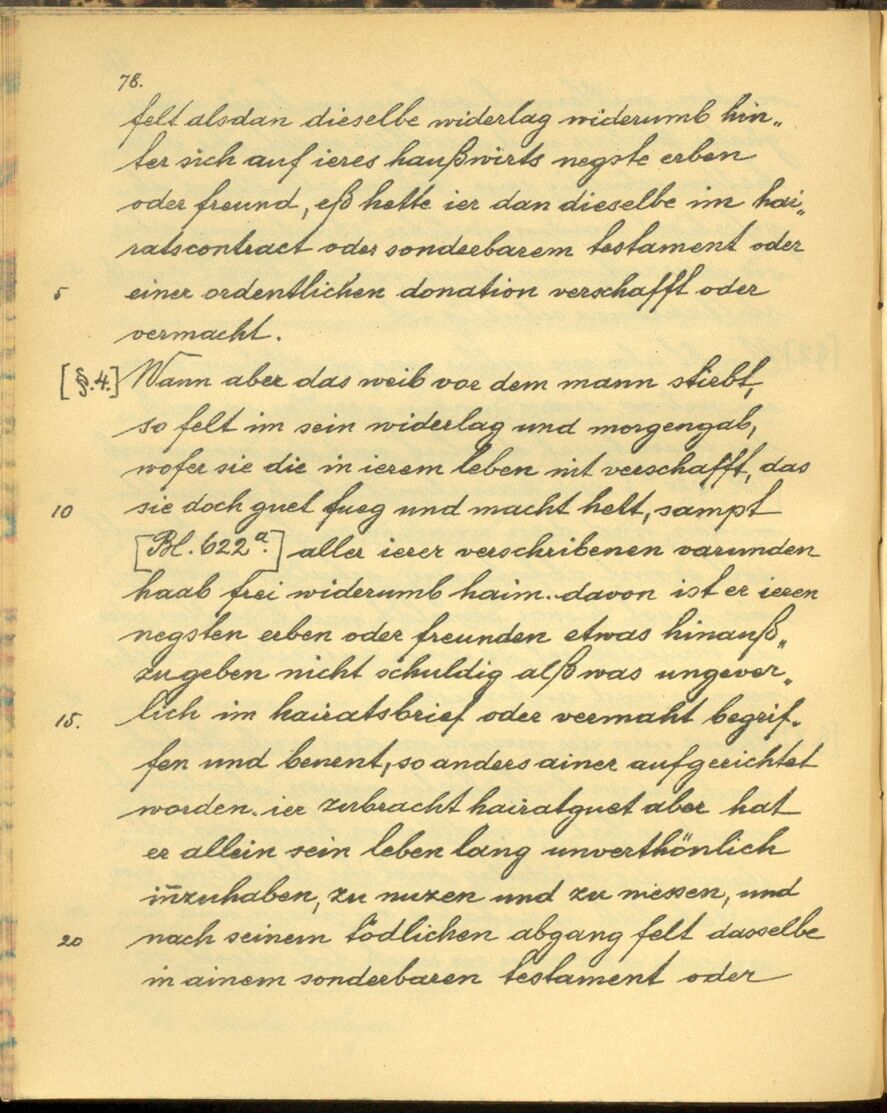 78.
felt alsdan dieselbe widerlag widerumb hin„
ter sich auf ieres haußwirts negste erben
oder freund, eß hette ier dan dieselbe im hai„
ratscontract oder sonderbarem testament oder
5 einer ordentlichen donation verschafft oder
vermacht.
[§.4.] Wann aber das weib vor dem mann stirbt,
so felt im sein widerlag und morgengab,
wofer sie die in ierem leben nit verschafft, das
10 sie doch guet fueg und macht helt, sampt
[Bl. 622a.] aller ierer verschribenen varunden
haab frei widerumb haim. davon ist er ieren
negsten erben oder freunden etwas hinauß„
zugeben nicht schuldig alß was ungever„
15. lich im hairatsbrief oder vermaht begrif„
fen und benent, so anders ainer aufgerichtet
worden. ier zubracht hairatguet aber hat
er allein sein leben lang unverthönlich
in̄zuhaben, zu nuzen und zu niessen, und
20 nach seinem tödlichen abgang felt dasselbe
in ainem sonderbaren testament oder